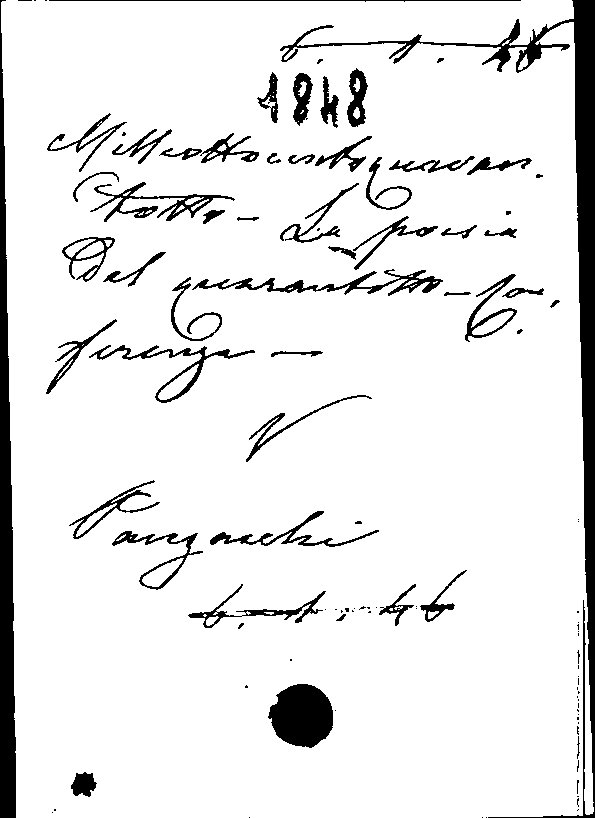 6. 1. 46
1848
Millottocentoquaran-
totto - La poesia
Del quarantotto - Con,
ferenza -
V
Panzacchi
6. 1. 46